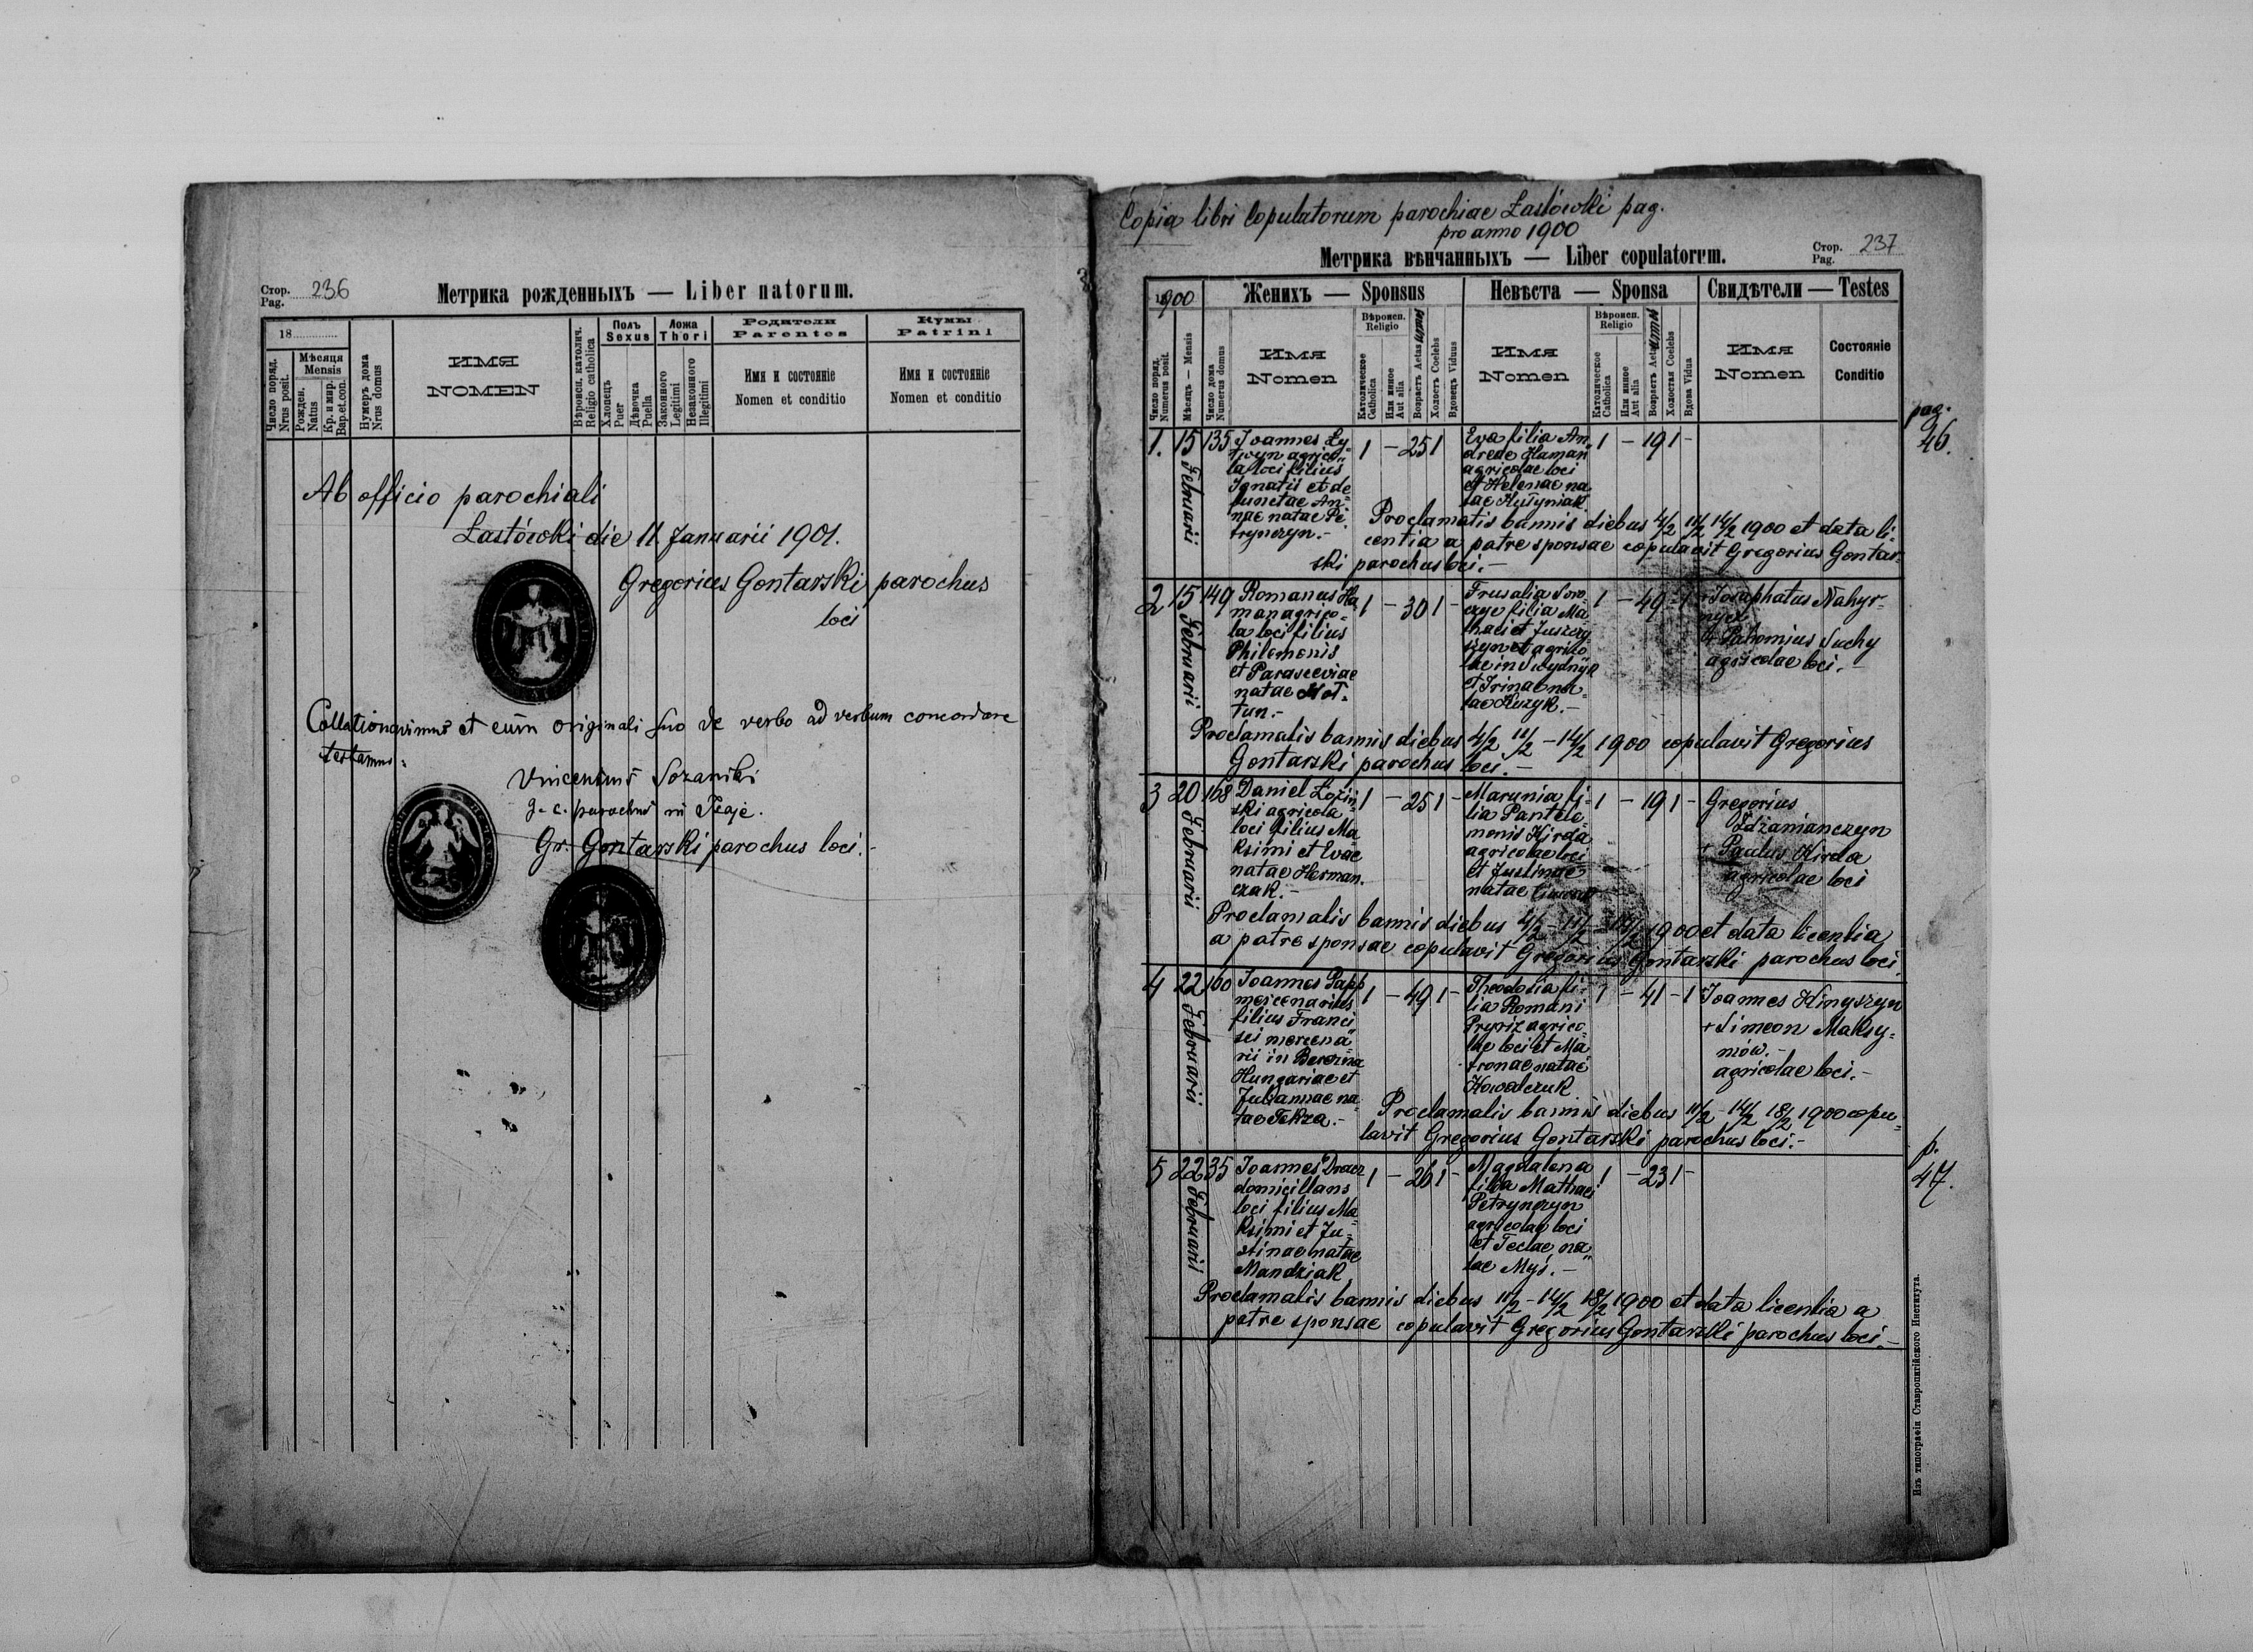 Стор. Pag. 236
Метрика рожденныхъ — Liber natorum.
18
Число поряд. Nrus posit.
Мѣсяця Mensis
Рожден. Natus
Кр. и мир. Bap. et con.
Нумеръ дома Nrus domus
ИМЯ
NOMEN
Вѣроисп. католич. Religio catholica
Полъ Sexus
Хлопецъ Puer
Дѣвочка Puella
Ложа Thori
Законного Legitimi
Незаконного Illegitimi
Родители
Parentes
Имя и состояніе
Nomen et conditio
Кумы
Patrini
Имя и состояніе
Nomen et conditio
Ab officio parochiali
Łastówki die 11. Januarii 1901.
Gregorius Gontarski parochus
loci
Collationavimus et cum originali suo de verbo ad verbum concordare
testamur.
Vincentius Sozański
g. c. parochus in
Gr. Gontarski parochus loci.-
Copia libri Copulatorum parochiae Łastówki pag.
pro anno 1900
Метрика вѣнчанныхъ — Liber copulatorum.
Стор. Pag. 237
1900
Женихъ — Sponsus
Невѣста — Sponsa
Свидѣтели — Testes
Число поряд. Numerus posit.
Мѣсяць — Mensis
Число дома Numerus domus
Имя
Nomen
Вѣроисп. Religio
Католическое Catholica
Или инное Aut alia
Возрастъ Aetas
Холостъ Coelebs
Вдовецъ Viduus
Имя
Nomen
Вѣроисп. Religio
Католическое Catholica
Или инное Aut alia
Возрастъ Aetas
Холостая Coelebs
Вдова Vidua
Имя
Nomen
Состояніе
Conditio
pag.
46.
1. 15 Februarii 135
Joannes Ly-
twyn agrico-
la loci filius
Ignatii et de
functae An-
nae natae Pe
trynczyn.-
1 - 25 1
Eva filia An-
dreae Haman
agricolae loci
et Helenae na
tae Kuzyniak
1 - 19 1 -
Proclamatis bannis diebus 4/2 11/2 14/2 1900 et data li-
centia a patre sponsae copulavit Gregorius Gontar-
ski parochus loci.-
2 15 Februarii 149
Romanus Ha
man agrico-
la loci filius
Philemonis
et Parasceviae
natae
1 - 30 1 -
filia Ma
thaei et
et Irinae na-
tae Kuzyk.-
1 - 49 - 1
Josaphatus Nahyr-
nyez
+ Pahomius Suchy
agricolae loci.-
Proclamatis bannis diebus 4/2 11/2 - 14/2 1900 copulavit Gregorius
Gontarski parochus loci.-
3 20 Februarii 168
Daniel Łoziń-
ski agricola
loci filius Ma
ksimi et Evae
natae Herman-
czak.-
1 - 25 1 -
Marunia fi-
lia Pantele-
monis Kirda
agricolae loci
et Justinae
natae
1 - 19 1 -
Gregorius
Zdżaniańczyn
+ Paulus Kirda
agricolae loci
Proclamatis bannis diebus 4/2 - 11/2 - 14/2 1900 et data licentia
a patre sponsae copulavit Gregorius Gontarski parochus loci.
4 22 Februarii 160
Joannes Papp
mercenarius
filius Franci
sci mercena
rii in
Hungariae et
Juliannae na
tae Tekza.-
1 - 49 1 -
Theodosia fi-
lia Romani
Pryriz agrico-
lae loci et Ma
tronae natae
Kowalczuk
1 - 41 - 1
Joannes Kinyszyn
+ Simeon Maksy-
mów.-
agricolae loci.-
Proclamatis bannis diebus 11/2 - 14/2 18/2 1900 copu-
lavit Gregorius Gontarski parochus loci.-
p.
47.
5 22 Februarii 35
Joannes Dracz
domicillans
loci filius Ma-
ksimi et Ju-
stinae natae
Mandziak
1 - 26 1 -
Magdalena
filia Mathaei
Petrynczyn
agricolae loci
et Teclae na-
tae Myś.-
1 - 23 1 -
Proclamatis bannis diebus 11/2 - 14/2 18/2 1900 et data licentia a
patre sponsae copulavit Gregorius Gontarski parochus loci.-
Изъ типографіи Ставропигійского Института.